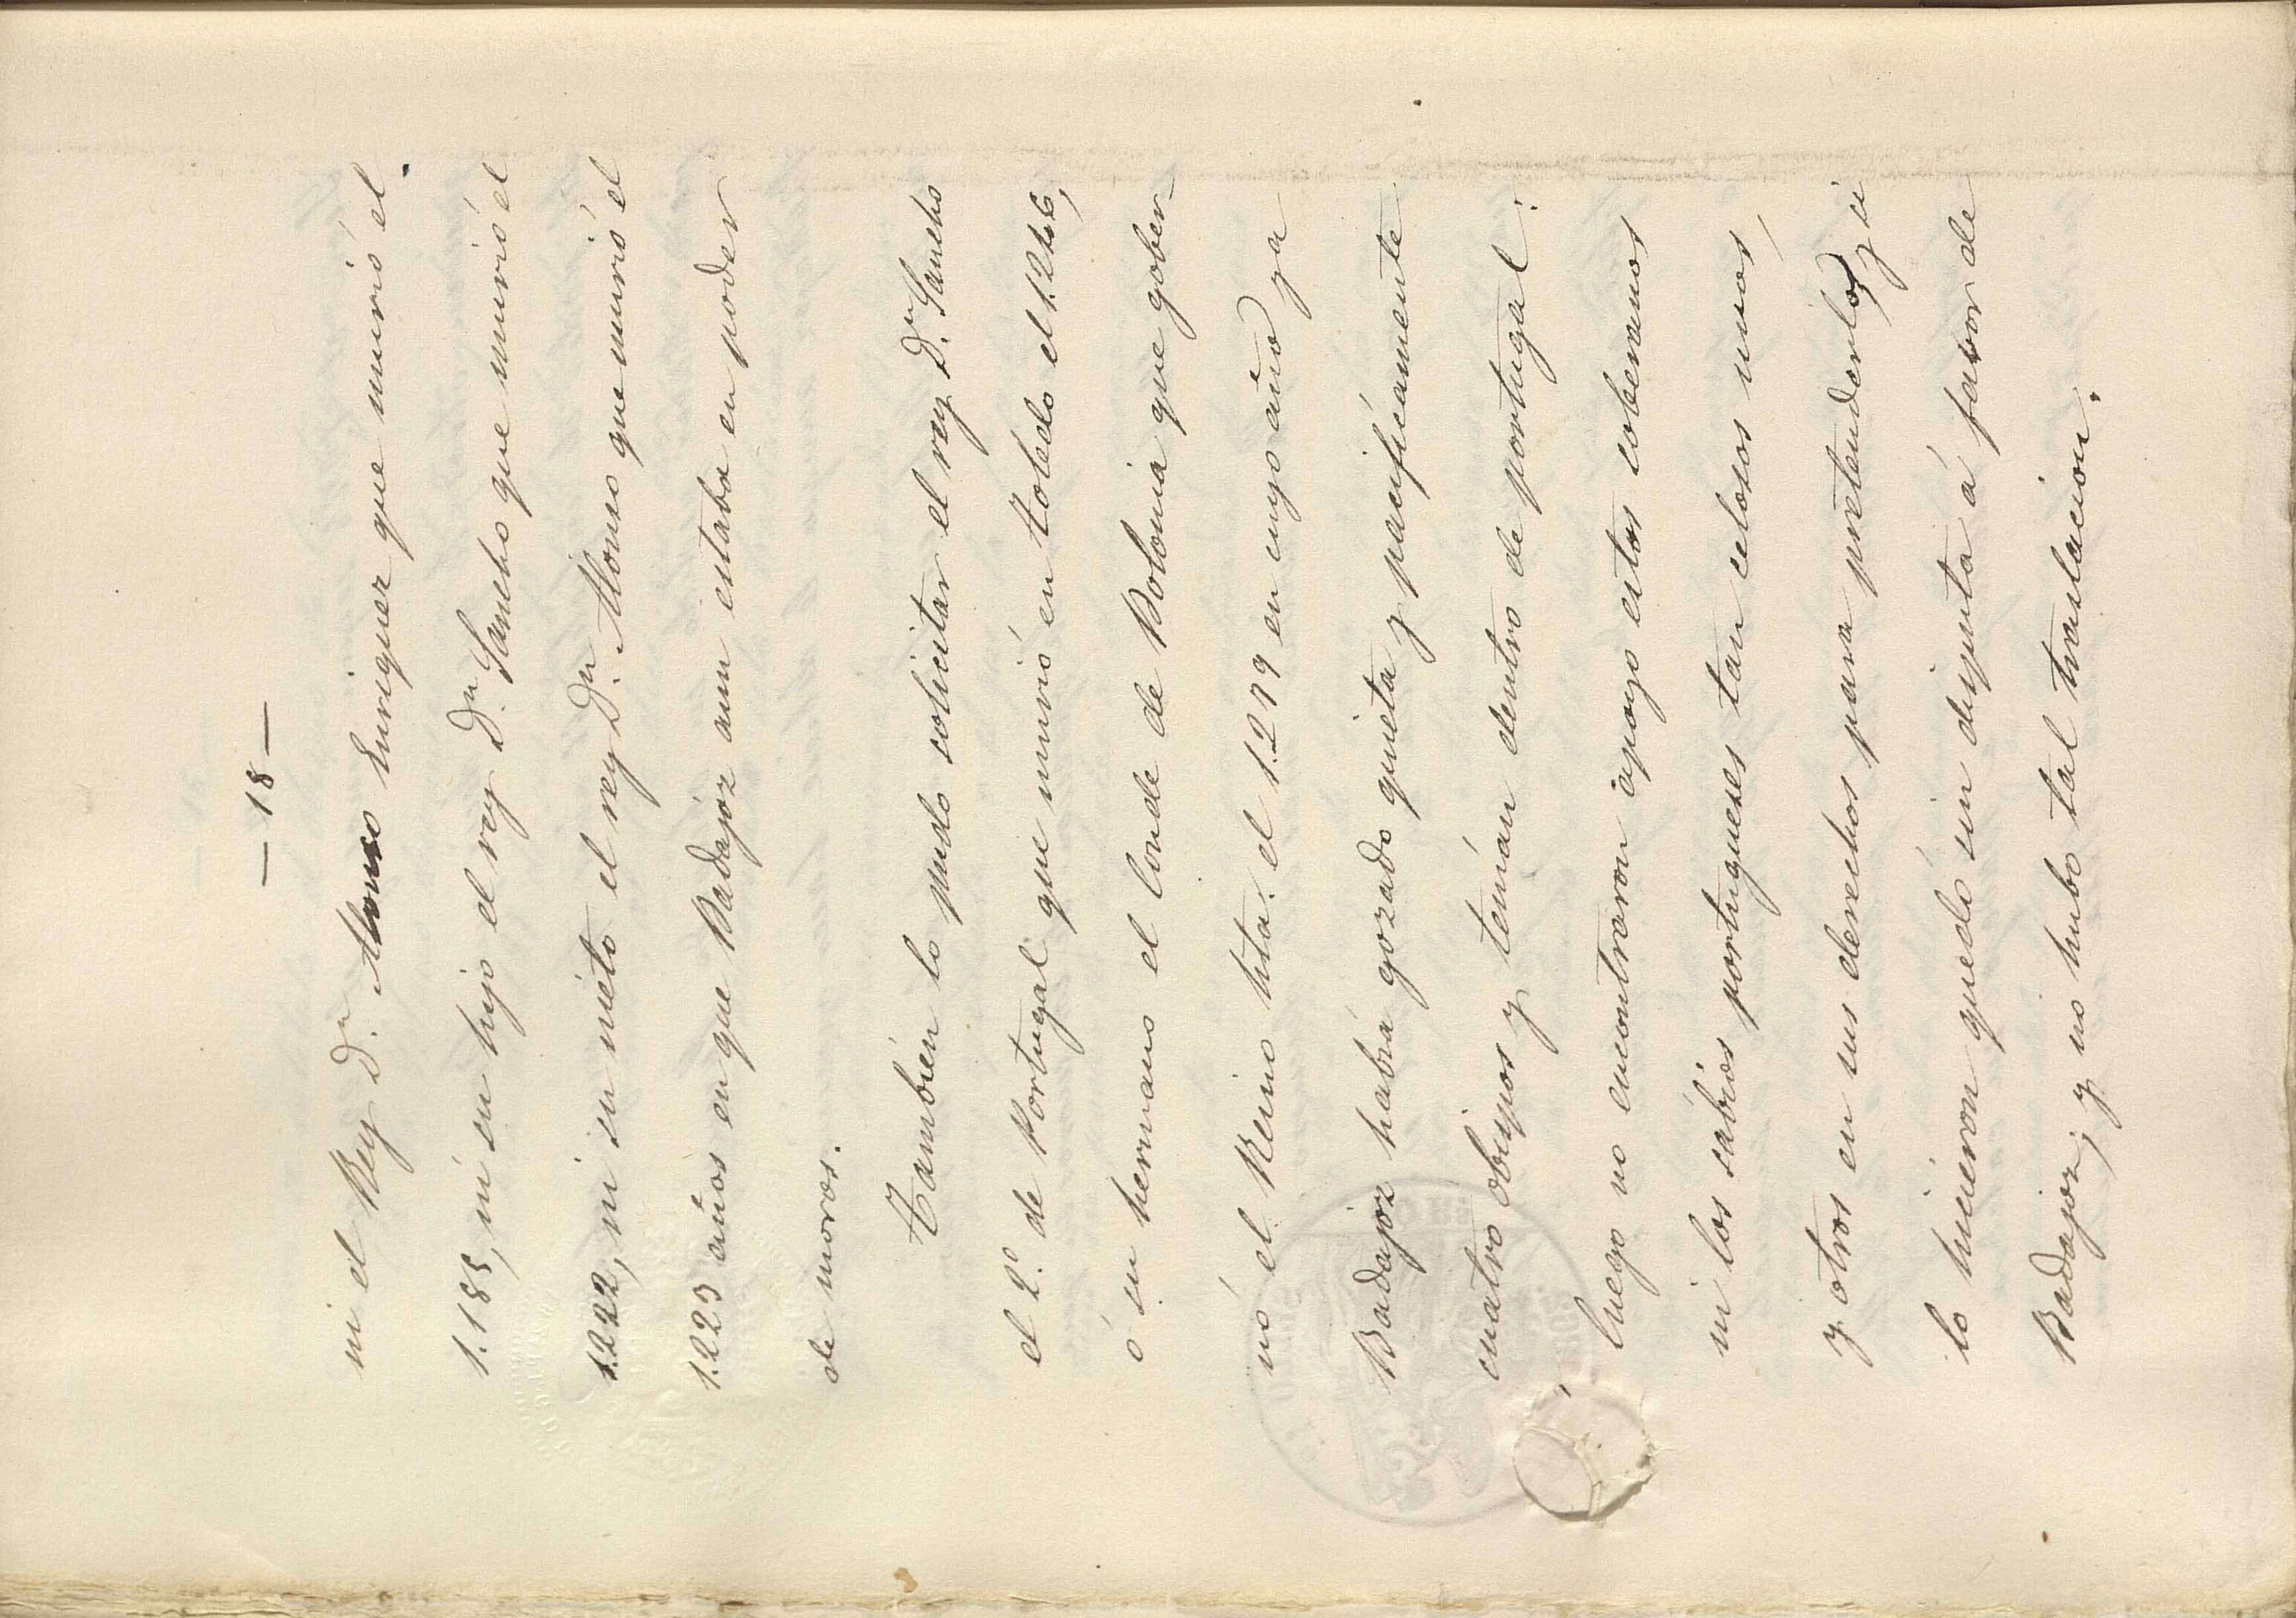 — 18 —
ni el Rey D.ⁿ Alonso Enriquez que murió el
1.185, ni su hijo el rey D.ⁿ Sancho que murió el
1.222, ni su nieto el rey D.ⁿ Alonso que murió el
1.223 años en que Badajoz aun estaba en poder
de moros.
Tambien lo pudo solicitar el rey D.ⁿ Sancho
el 2.º de Portugal que murió en Toledo el 1.246,
ó su hermano el Conde de Bolonia que gober-
nó el Reino hta. el 1.279 en cuyo año ya
Badajoz habia gozado quieta y pacificamente
cuatro obispos y tenian dentro de portugal:
luego no encontraron apoyo estos soberanos
ni los sabios portugueses tan celosos unos,
y otros en sus derechos para pretenderlo; y si
lo hicieron quedó sin disputa á favor de
Badajoz; y no hubo tal traslacion.